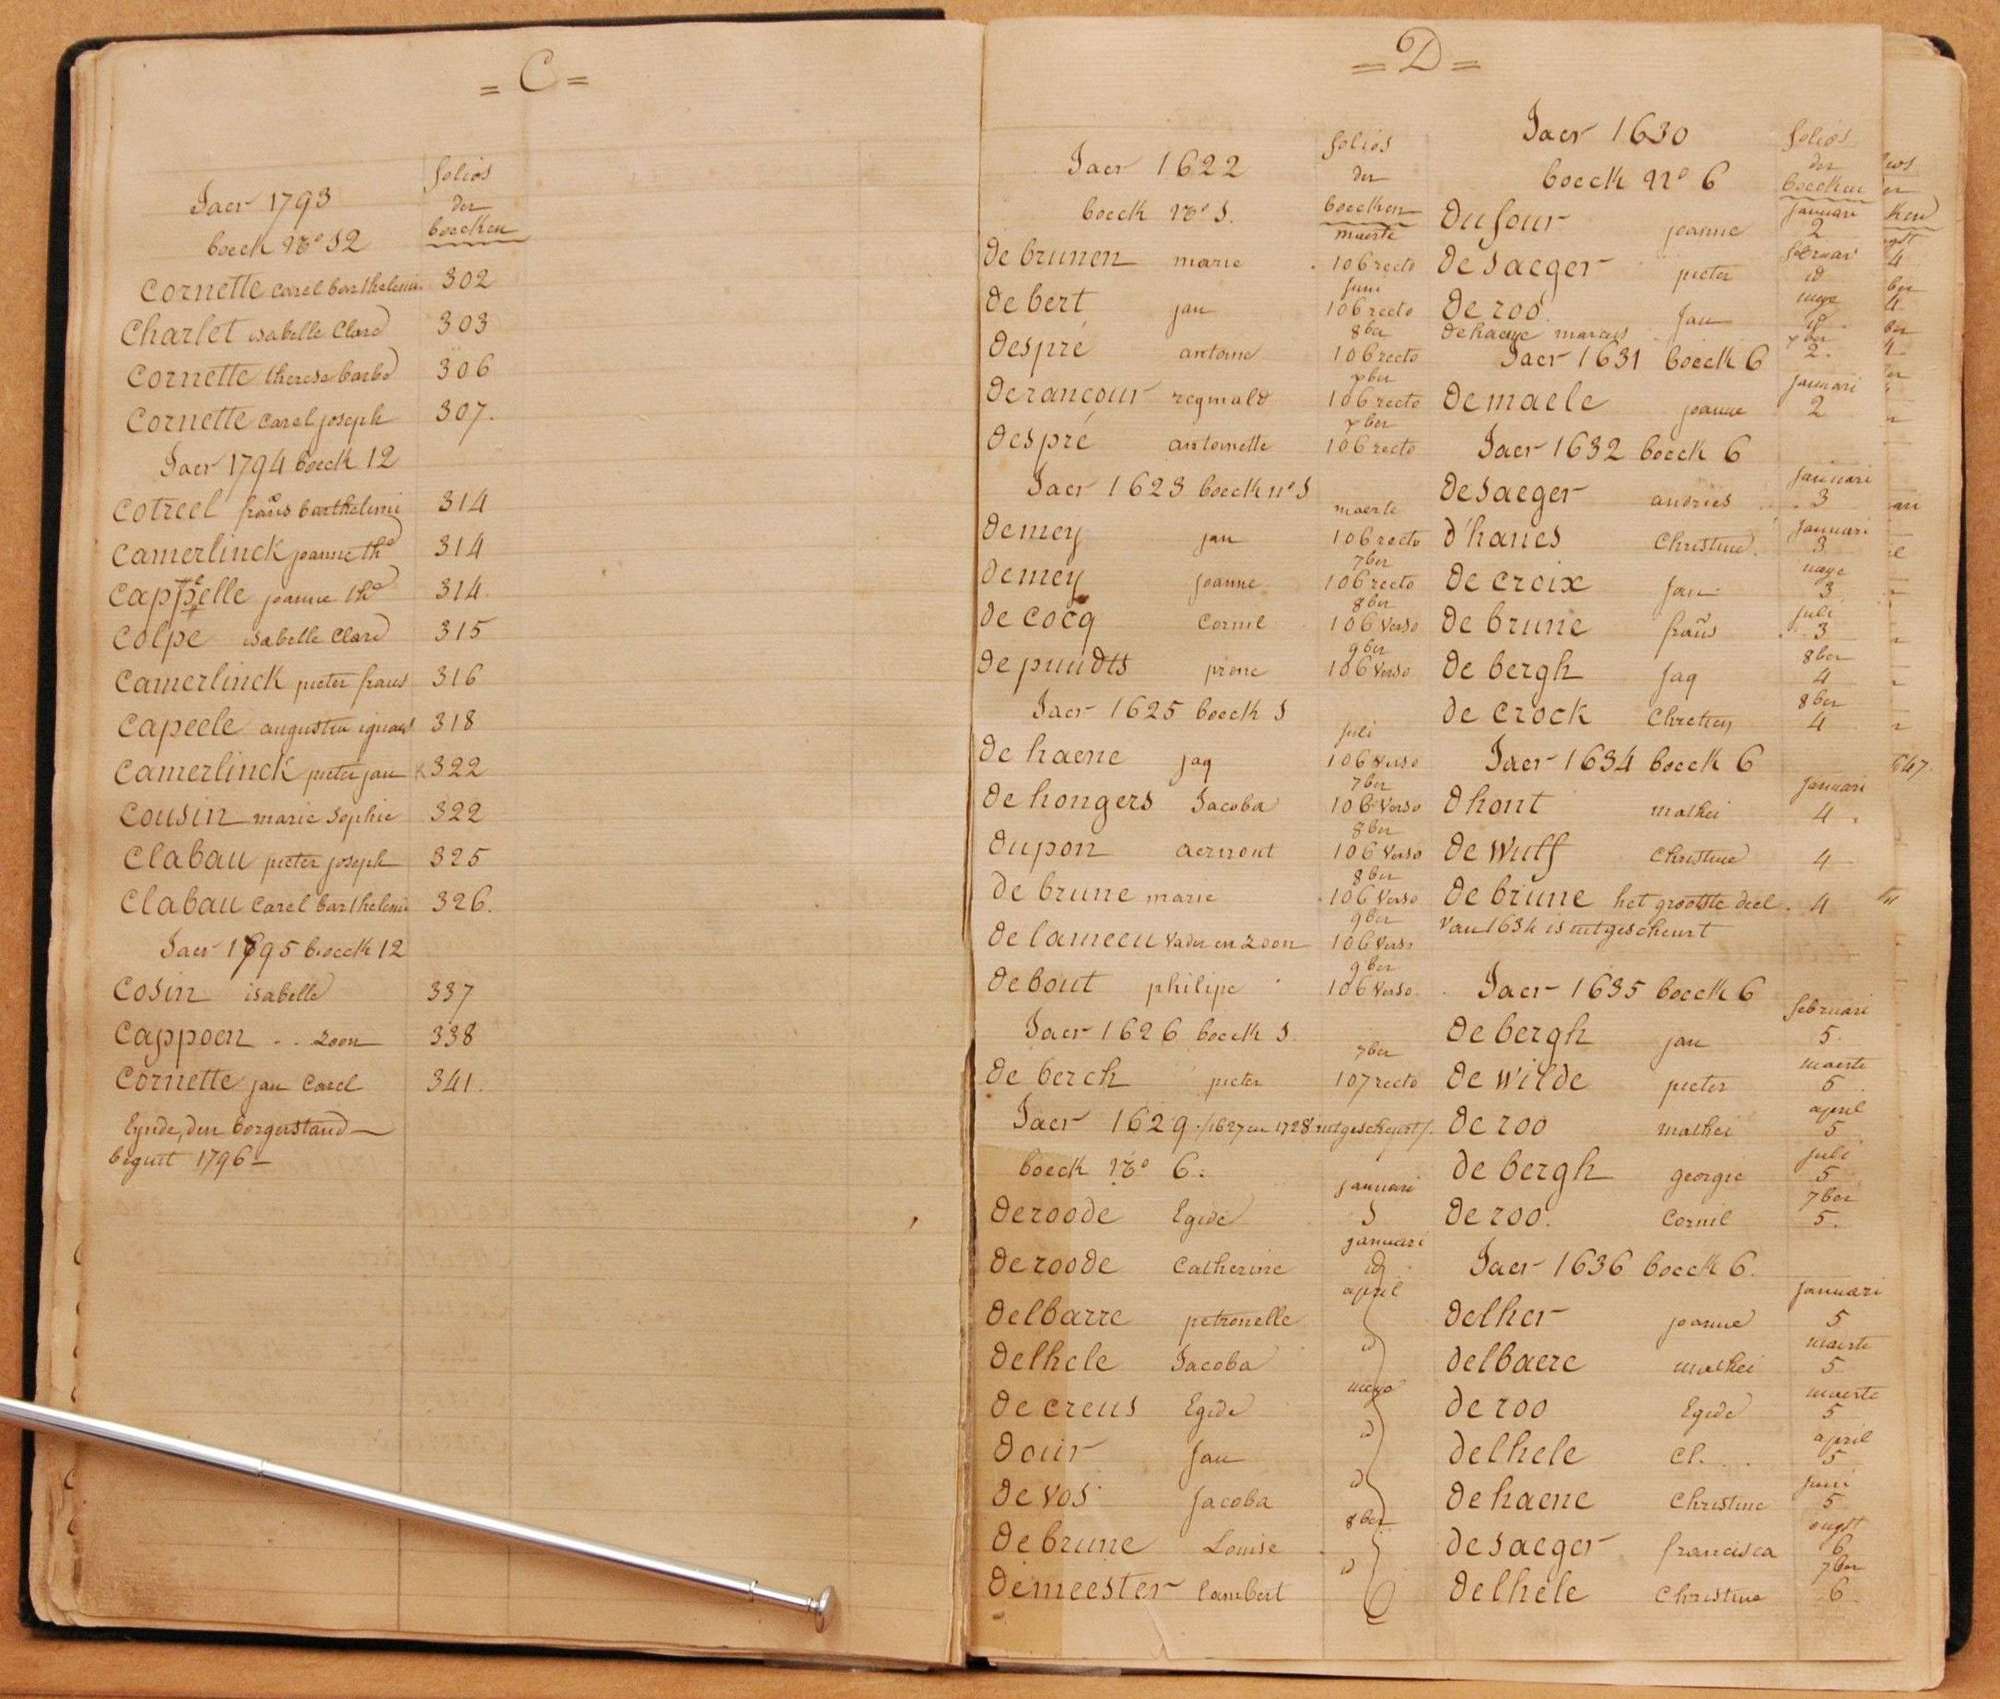 = C =
Jaer 1793
folios
der
boecken
boeck No 12
Cornette carel barthelemi 302
Charlet isabelle Clare 303
Cornette therese barbe 306
Cornette carel joseph 307.
Jaer 1794 boeck 12
Cotreel frans barthelemi 314
Camerlinck joanne the 314
Cappelle joanne the 314.
Colpe isabelle Clare 315
Camerlinck pieter frans 316
Capeele augustin ignaus 318
Camerlinck pieter jan 322
Cousin marie Sophie 322
Clabau pieter joseph 325
Clabau Carel barthelemi 326.
Jaer 1795 boeck 12
Cosin isabelle 337
Cappoen .. zoon 338
Cornette jan Carel 341.
Eynde, den borgerstand
begint 1796
= D =
Jaer 1622
folios
der
boecken
boeck No 1.
maerte
de brunen marie 106 recto
juni
de bert jan 106 recto
8ber
despré antoine 106 recto
9ber
derancour regmald 106 recto
xber
despré antoinette 106 recto
Jaer 1623 boeck no 1
maerte
demey jan 106 recto
7ber
demey joanne 106 recto
8ber
de cocq Cornil 106 Verso
9ber
de puudts 106 Verso
Jaer 1625 boeck 1
juli
de haene jaq 106 Verso
7ber
de hongers Jacoba 106 Verso
8ber
dupon aernout 106 Verso
8ber
de brune marie 106 Verso
9ber
de lameeu Vader en zoon 106 Verso
9ber
debout philipe 106 Verso
Jaer 1626 boeck 1
7ber
de berch pieter 107 recto
Jaer 1629 ./1627 en 1728 uitgescheurt/.
boeck No 6.
januari
deroode Egide 1
januari
deroode Catherine id
april
delbarre petronelle
delhele Jacoba id
meye
decreus Egide
dour Jan id
de vos Jacoba id
8ber
de brune Louise
demeester lambert id
Jaer 1630
folios
der
boecken
boeck No 6
januari
dufour joanne 2
februari
desaeger pieter id
meye
de roo Jan id
xber
dehaene marcus 2.
Jaer 1631 boeck 6
januari
demaele joanne 2
Jaer 1632 boeck 6
januari
desaeger andries 3
januari
d'hanes Christine 3
meye
de croix Jan 3
juli
de brune frans 3
8ber
de bergh jaq 4
8ber
de crock Chretien 4
Jaer 1634 boeck 6
januari
dhont mathei 4.
de wulf Christine 4
de brune het grootste deel. 4
Van 1634 is uitgescheurt
Jaer 1635 boeck 6
februari
de bergh jan 5
maerte
de wilde pieter 5
april
de roo mathei 5
juli
de bergh georgie 5
7ber
de roo. Cornil 5.
Jaer 1636 boeck 6.
januari
delher joanne 5
maerte
delbaere mathei 5
maerte
de roo Egide 5
april
delhele Ch. 5
juni
dehaene Christine 5
ougst
desaeger francisca 6
7ber
delhele Christine 6